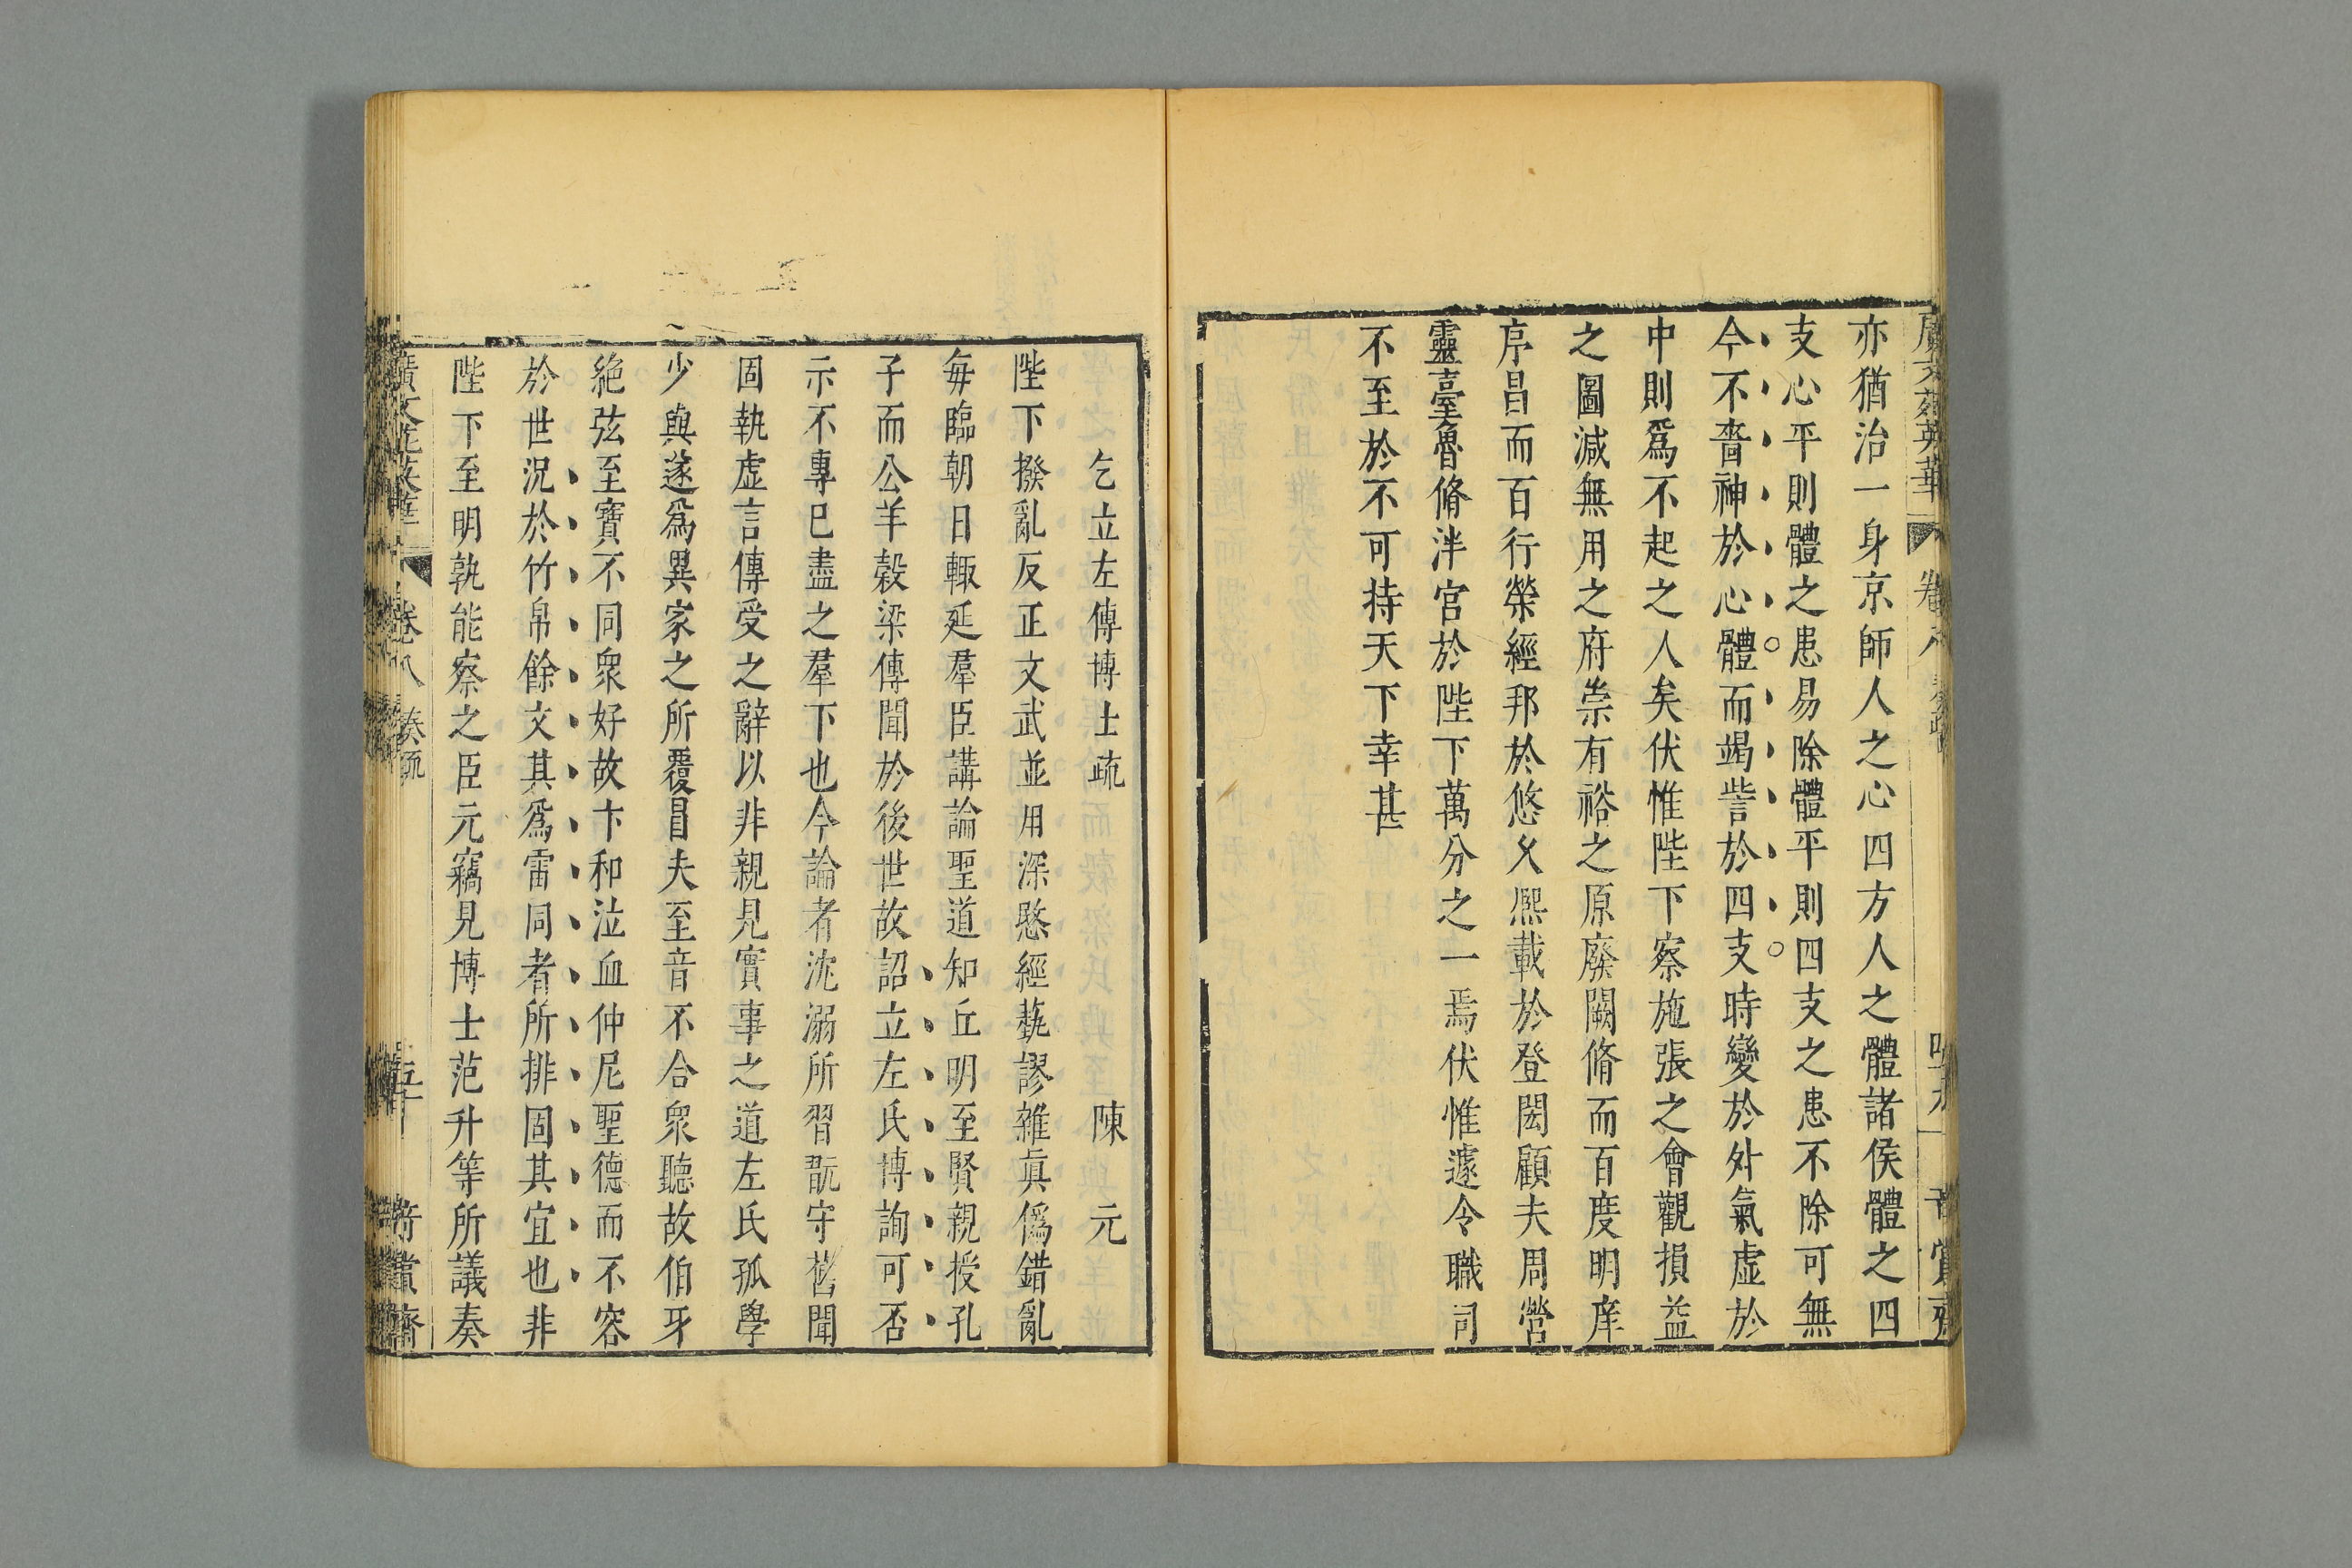 廣文苑英華 卷八 奏疏
亦猶治一身京師人之心四方人之體諸侯體之四
支心平則體之患易除體平則四支之患不除可無
今不嗇神於心體而竭訾於四支時變於外氣虛於
中則爲不起之人矣伏惟陛下察施張之會觀損益
之圖減無用之府崇有裕之原廢闕脩而百度明庠
序昌而百行榮經邦於悠久熙載於登閎顧夫周營
靈臺魯脩泮宮於陛下萬分之一焉伏惟遽令職司
不至於不可持天下幸甚
乞立左傳博士疏 陳元
陛下撥亂反正文武並用深愍經藝謬雜眞僞錯亂
每臨朝日輙延羣臣講論聖道知丘明至賢親授孔
子而公羊榖梁傳聞於後世故詔立左氏博詢可否
示不專已盡之羣下也今論者沈溺所習翫守舊聞
固執虛言傳受之辭以非親見實事之道左氏孤學
少與遂爲異家之所覆冒夫至音不合衆聽故伯牙
絶弦至寶不同衆好故卞和泣血仲尼聖德而不容
於世況於竹帛餘文其爲雷同者所排固其宜也非
陛下至明孰能察之臣元竊見博士范升等所議奏
廣文苑英華 卷八 奏疏 五十 奇賞齋